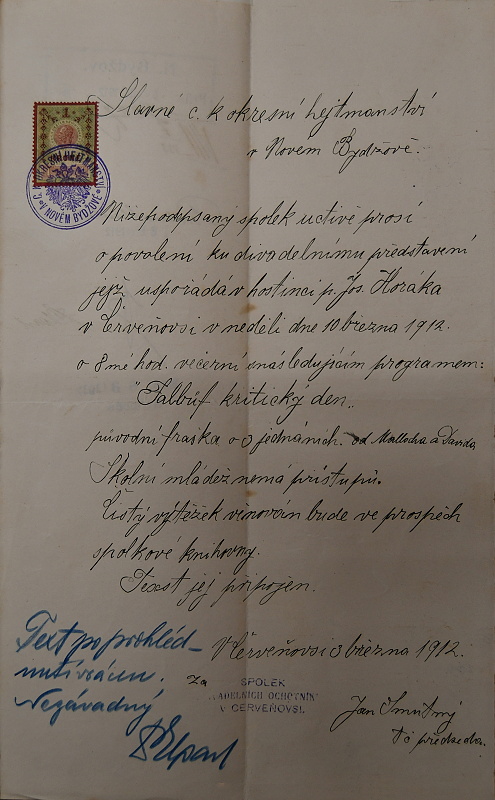 1
C. K. OKRESNÍ HEJTMANSTVÍ
V NOVÉM BYDŽOVĚ
Slavné c. k okresní hejtmanství
v Novém Bydžově.
Nížepodpsaný spolek uctivě prosí
o povolení ku divadelnímu představení
jejž uspořádá v hostinci p. Jos. Horáka
v Červeňovsi v neděli dne 10 března 1912.
o 8mé hod. večerní s následujícím programem:
"Falbův kritický den"
původní fraška o 3 jednáních. od Mallocha a Davida.
Školní mládež nemá přístupů.
Čistý výtěžek věnován bude ve prospěch
spolkové knihovny.
Text jej připojen.
V Červeňovsi 3 března 1912.
Za
SPOLEK
DIVADELNÍCH OCHOTNÍKŮ
V ČERVEŇOVSI.
Jan Smutný
předseda.
Text po prohléd-
nutí vrácen.
Nezávadný